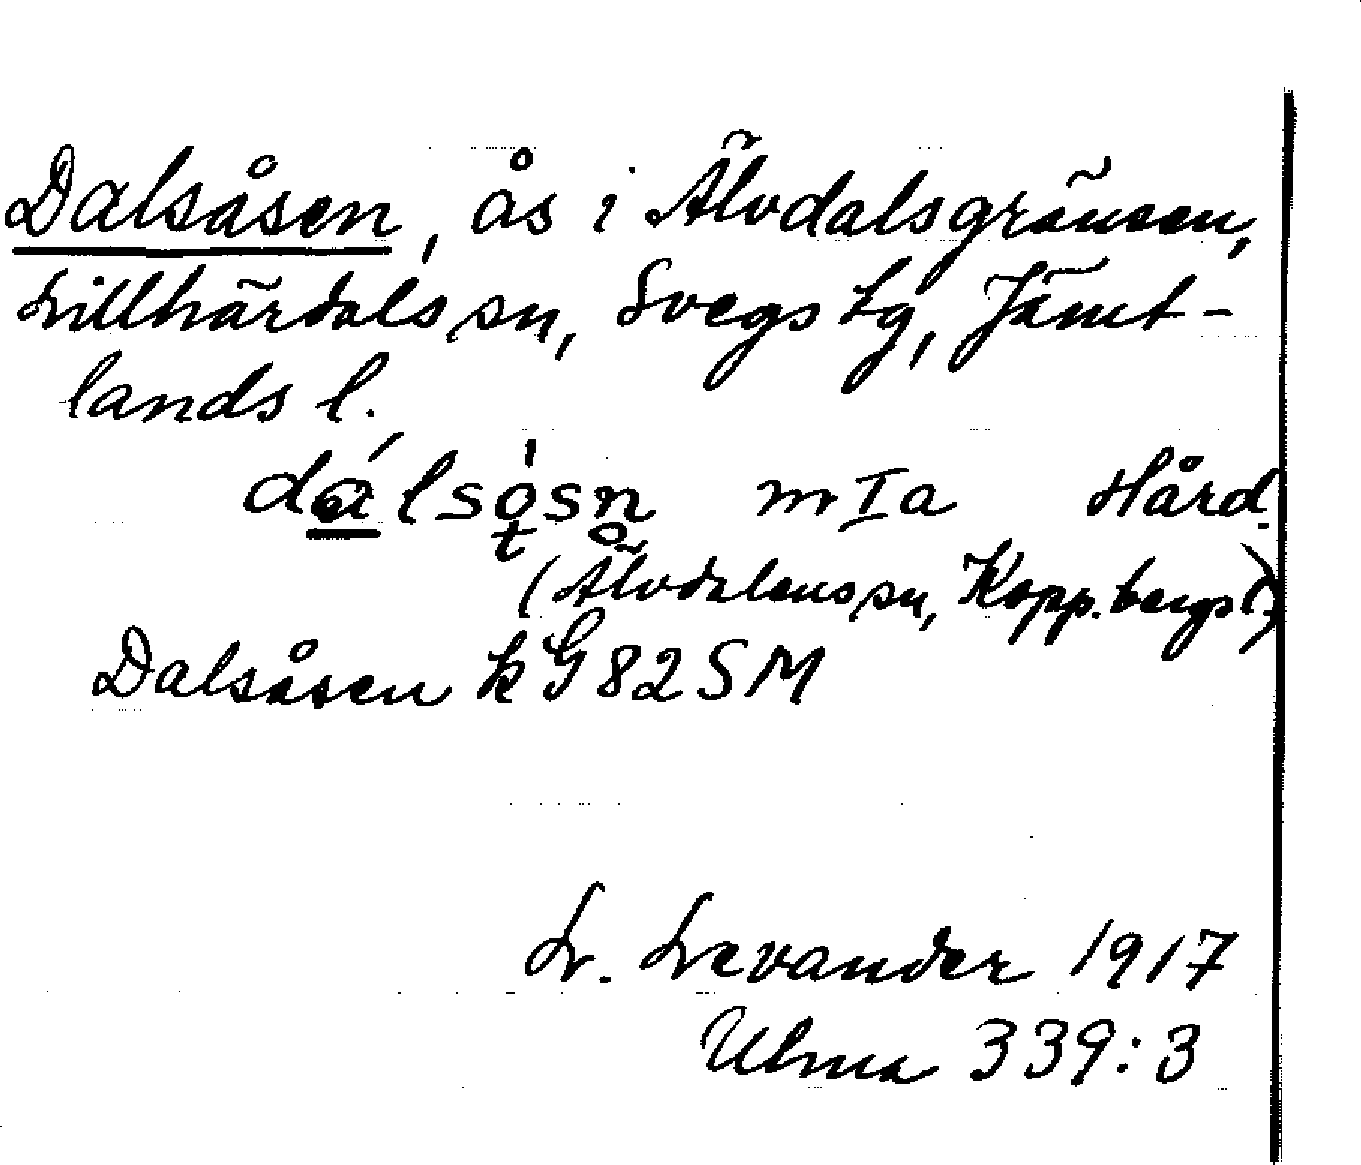 Dalsåsen, ås i Älvdalsgränsen,
Lillhärdals sn, Svegs tg, Jämt-
lands l.
dálsosn mIa Hård.
(Älvdalens sn, Kopp.bergs l.)
Dalsåsen kG82SM
L. Levander 1917
Ulma 339:3